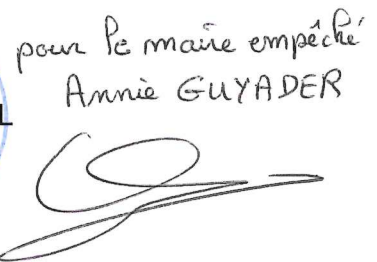 pour le maire empêché
Annie GUYADER
L